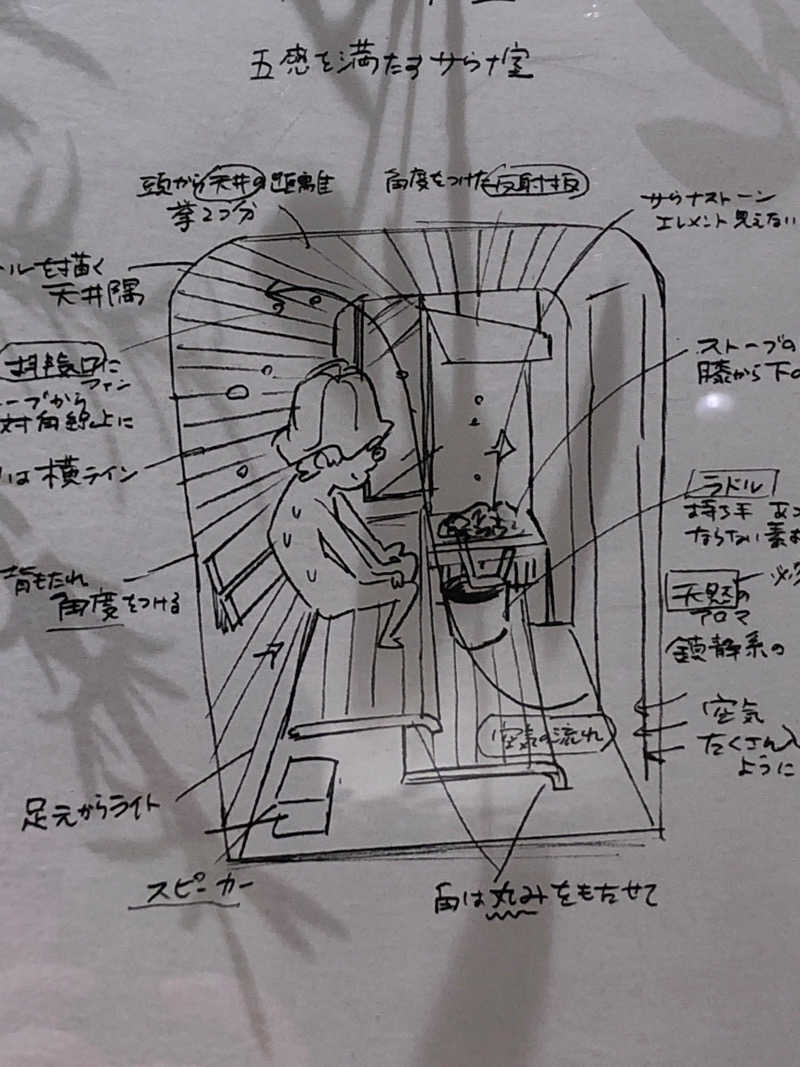 五感を満たすサウナ室
頭から天井の距離
拳2つ分
角度をつけた反射板
サウナストーン
エレメント見えない
ールを描く
天井隅
排気口に
ファン
ーブから
対角線上に
は横ライン
背もたれ
角度をつける
足元からライト
スピーカー
ストーブの
膝から下の
ラドル
持ち手 あつ
ならない素材
天然の
アロマ
鎮静系の
空気
たくさん入
ように
空気の流れ
角は丸みをもたせて